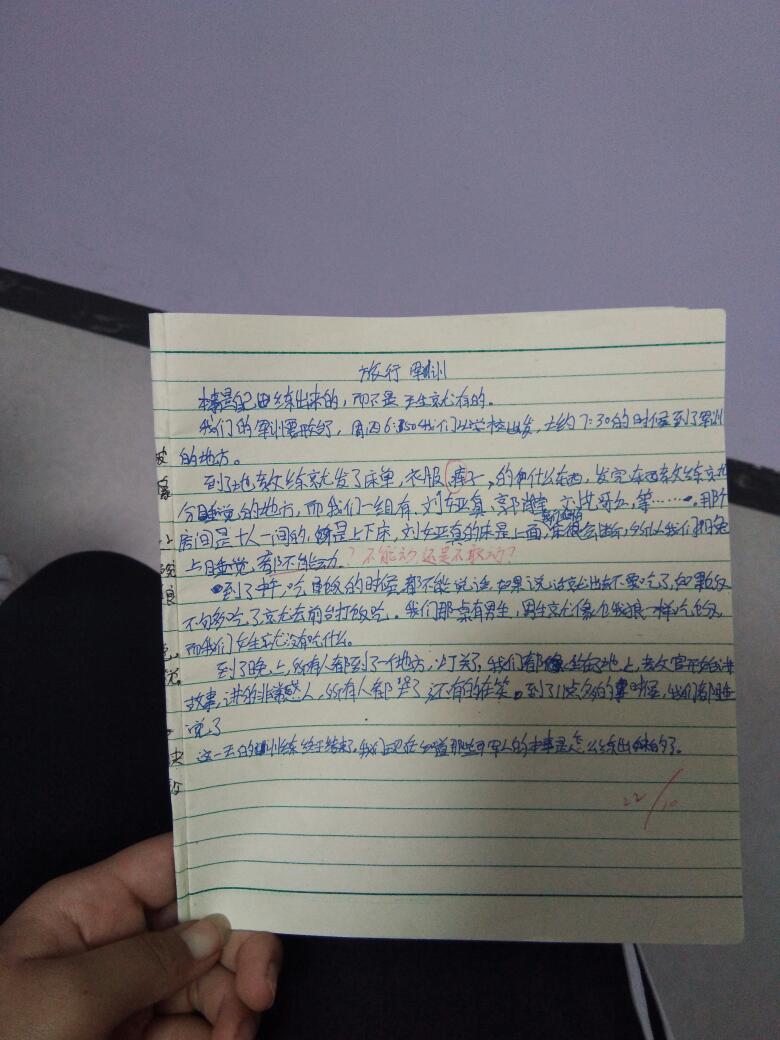 旅行 军训
本事是自己练出来的，而不是天生就有的。
我们的军训要开始了，周四6:50我们从学校出发，大约7:30的时候到了军训
的地方。
到了地教练就发了床单，衣服，裤子，的什么东西，发完东西教练就
分睡觉的地方，而我们一组有，刘亚真，等……。那个
房间是十人一间的，是上下床，刘亚真的床是上面，所以我们晚
上睡觉，都不能动。
？不能动还是不敢动？
到了中午，吃饭的时候都不能说话，如果说话就出去不要吃了，如果饭
不够吃了就去前台打饭吃。我们那桌有男生，男生就像饿狼一样吃饭，
而我们女生就没有吃什么。
到了晚上，所有人都到了一个地方，灯关了，我们都坐在地上，教官开始讲
故事，讲的非常感人，所有人都哭了还有的在笑。到了11点多的时候，我们都睡
觉了
这一天的训练终于结束了。我们现在知道那些军人的本事是怎么练出来的了。
22/10